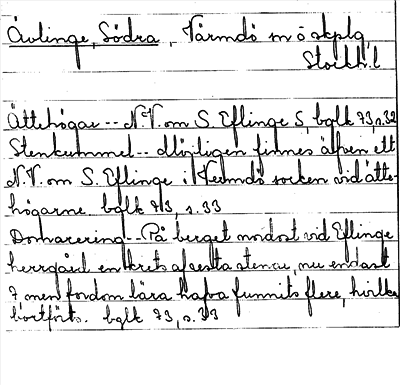 Ävlinge, Södra, Värmdö sn ö skplg
Stockh. l
Ättehögar -- N.V. om S. Eflinge S, bglk 73, s. 32
Stenkummel -- Möjligen finnes äfven ett
N.V. om S. Eflinge i Vermdö socken vid ätte-
högarne bglk 73, s. 33
Domarering -- På berget nordost vid Eflinge
herrgård en krets af resta stenar, nu endast
7, men fordom lära hafva funnits flere, hvilka
bortförts. bglk 73, s. 33